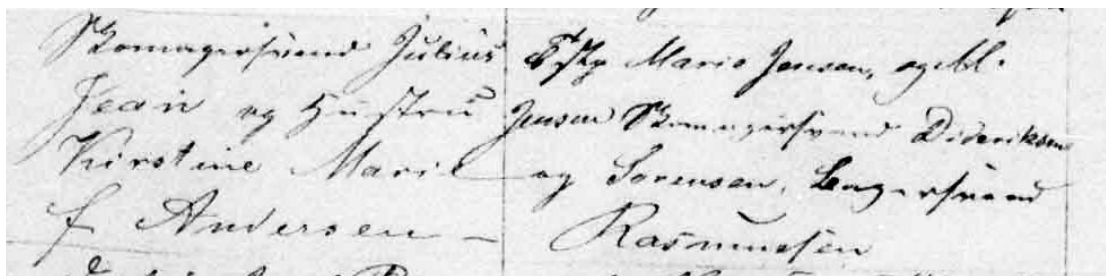 Skomagersvend Julius
Jean og Hustru
Kirstine Marie
f Andersen
Marie Jensen, og M.
Jensen Skomagersvend Dideriksen
og Sørensen, Bagersvend
Rasmussen